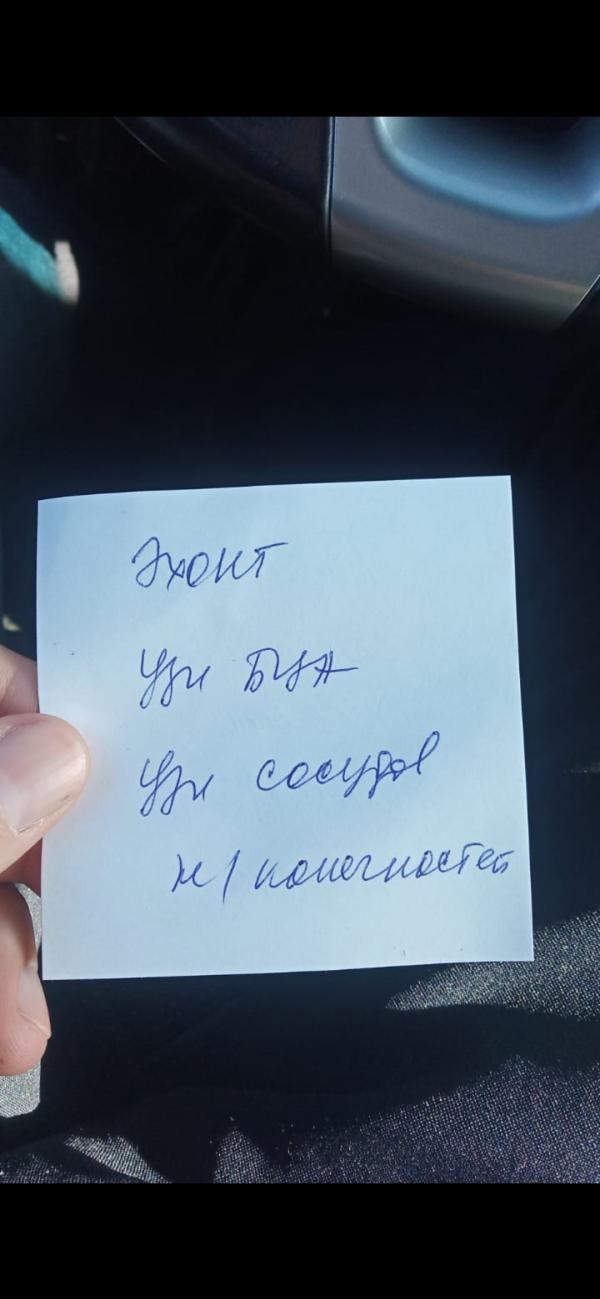 Эхокг
Узи БЦА
Узи сосудов
н/конечностей